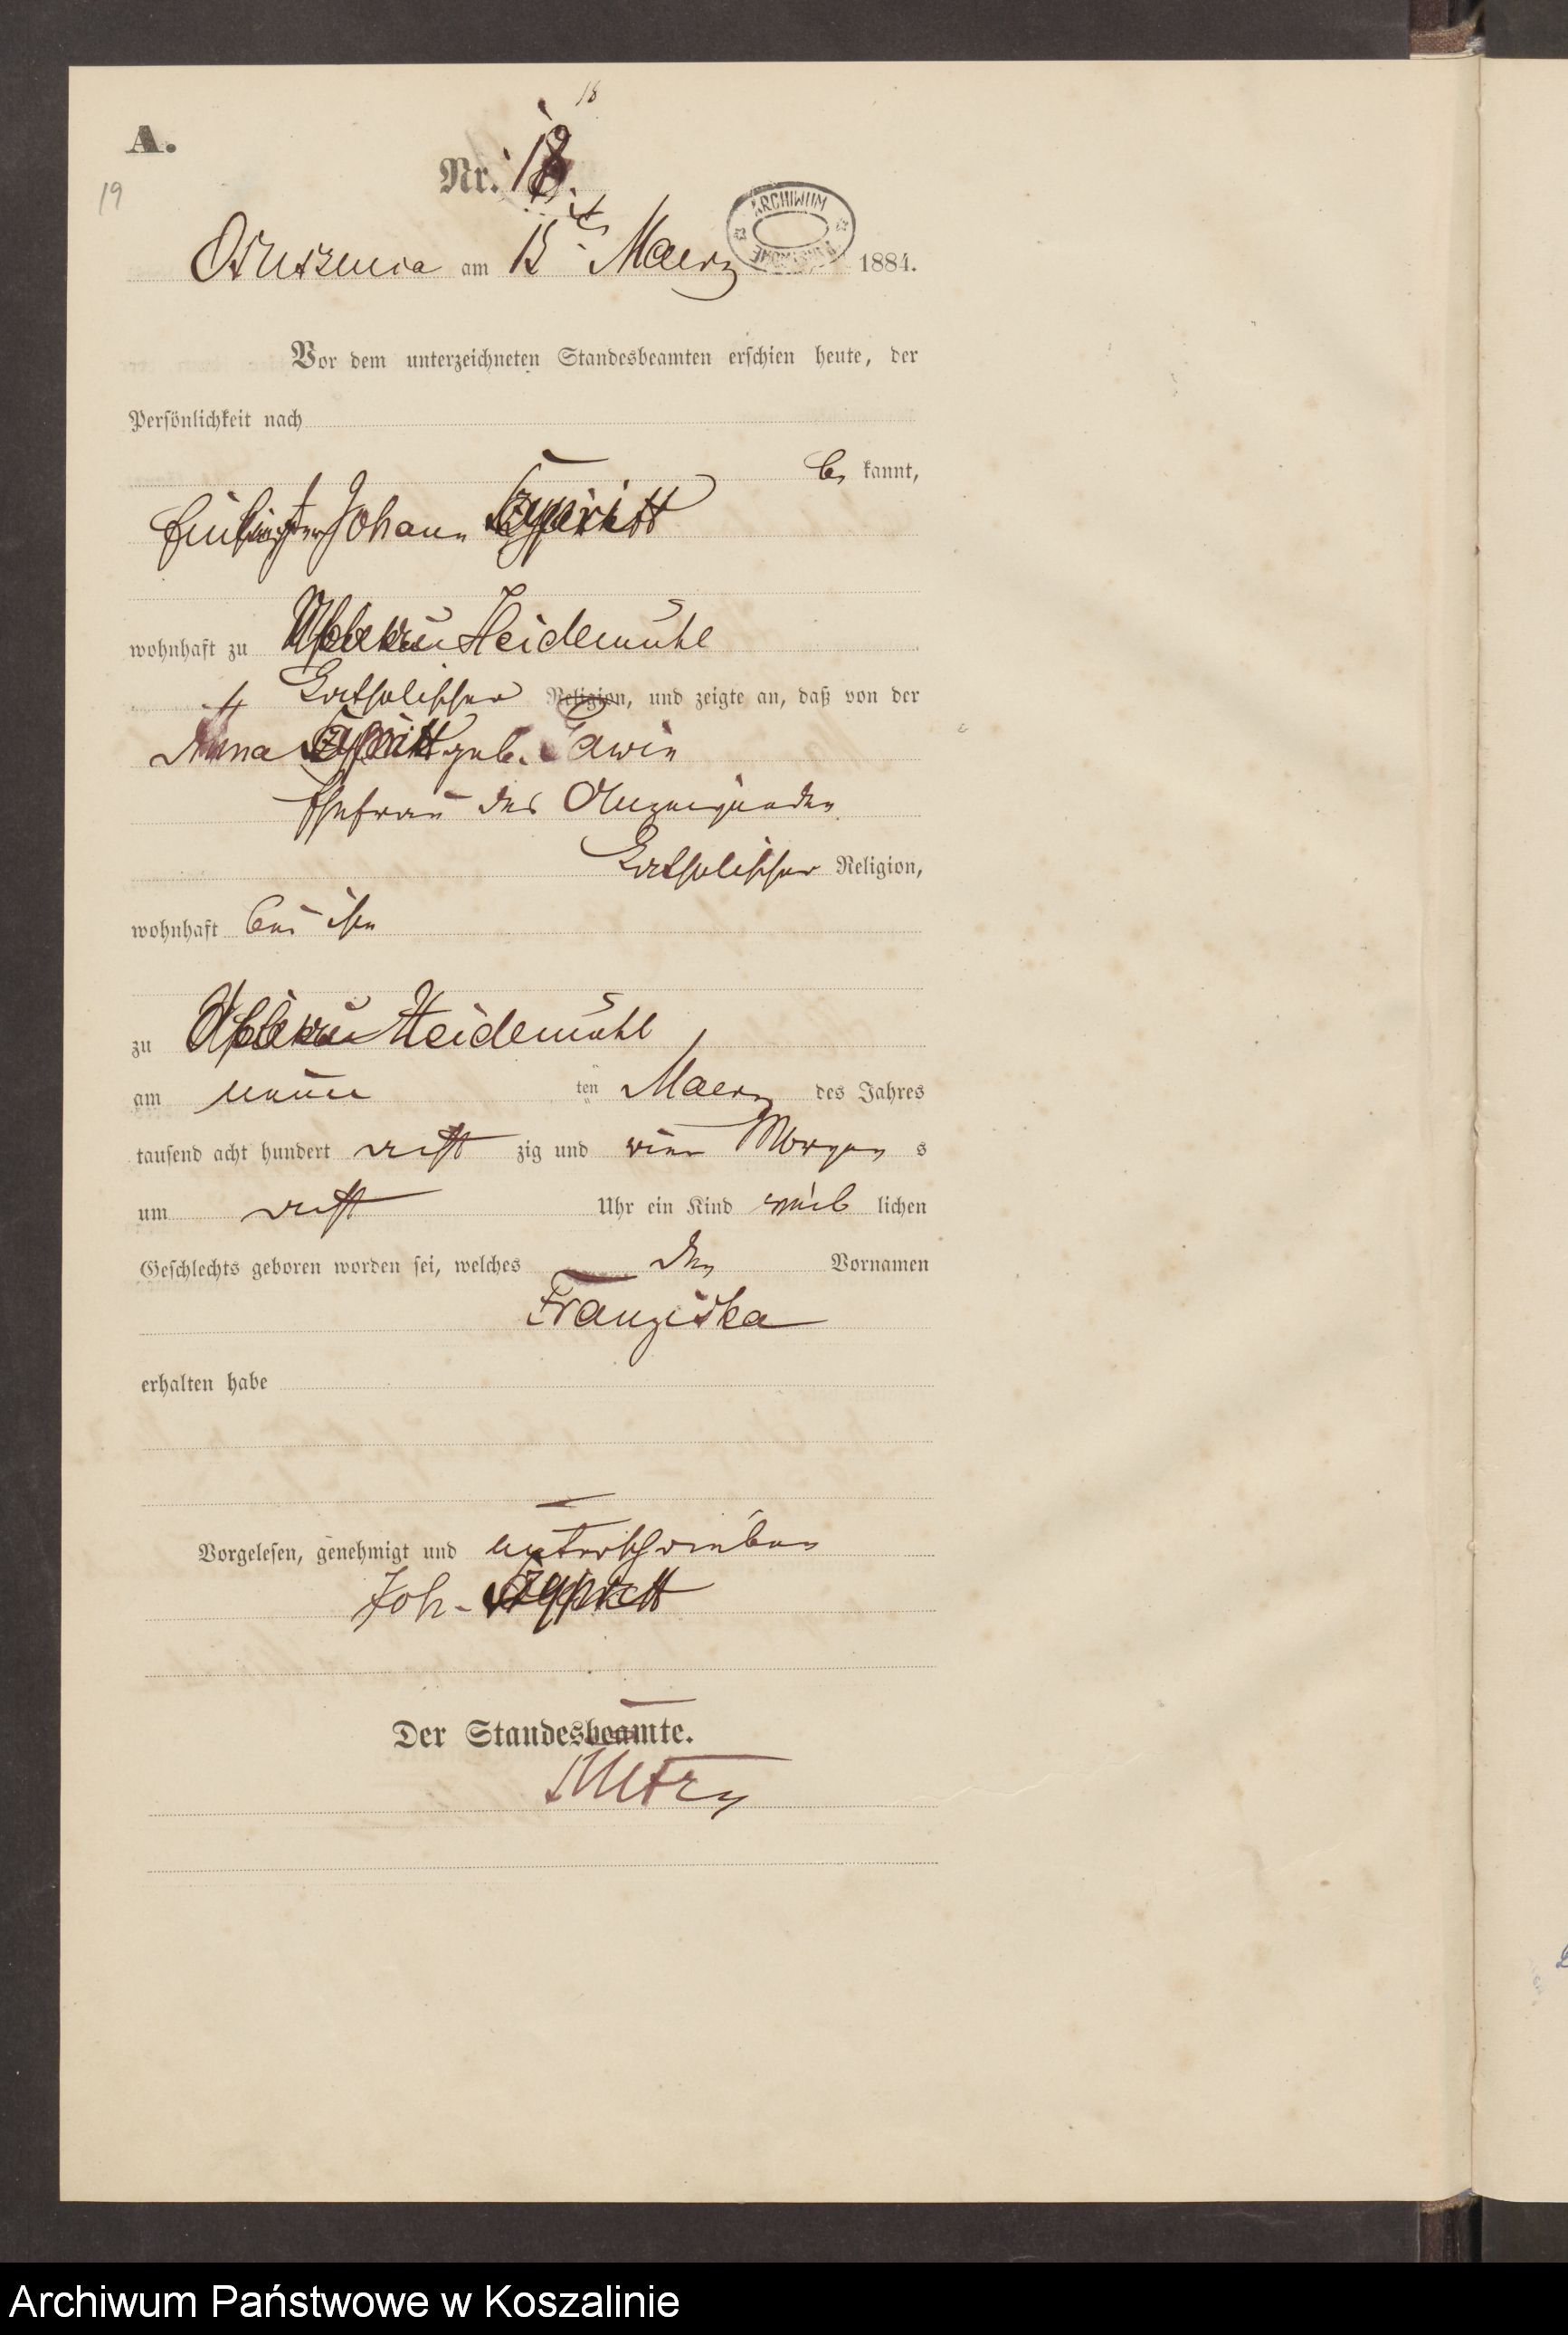 18
A.
Nr. 18.
19
Osusznica am 15 ten Maerz 1884.
ARCHIWUM
Vor dem unterzeichneten Standesbeamten erschien heute, der
Persönlichkeit nach
be kannt,
Johann
wohnhaft zu Heidemühl
katholischer Religion, und zeigte an, daß von der
Anna geb.
Ehefrau des Anzeigenden
katholischer Religion,
wohnhaft bei ihm
zu Heidemühl
am neun ten Maerz des Jahres
tausend acht hundert acht zig und vier Morgen s
um acht Uhr ein Kind weib lichen
Geschlechts geboren worden sei, welches den Vornamen
Franziska
erhalten habe
Vorgelesen, genehmigt und unterschrieben
Joh.
Der Standesbeamte.
Archiwum Państwowe w Koszalinie